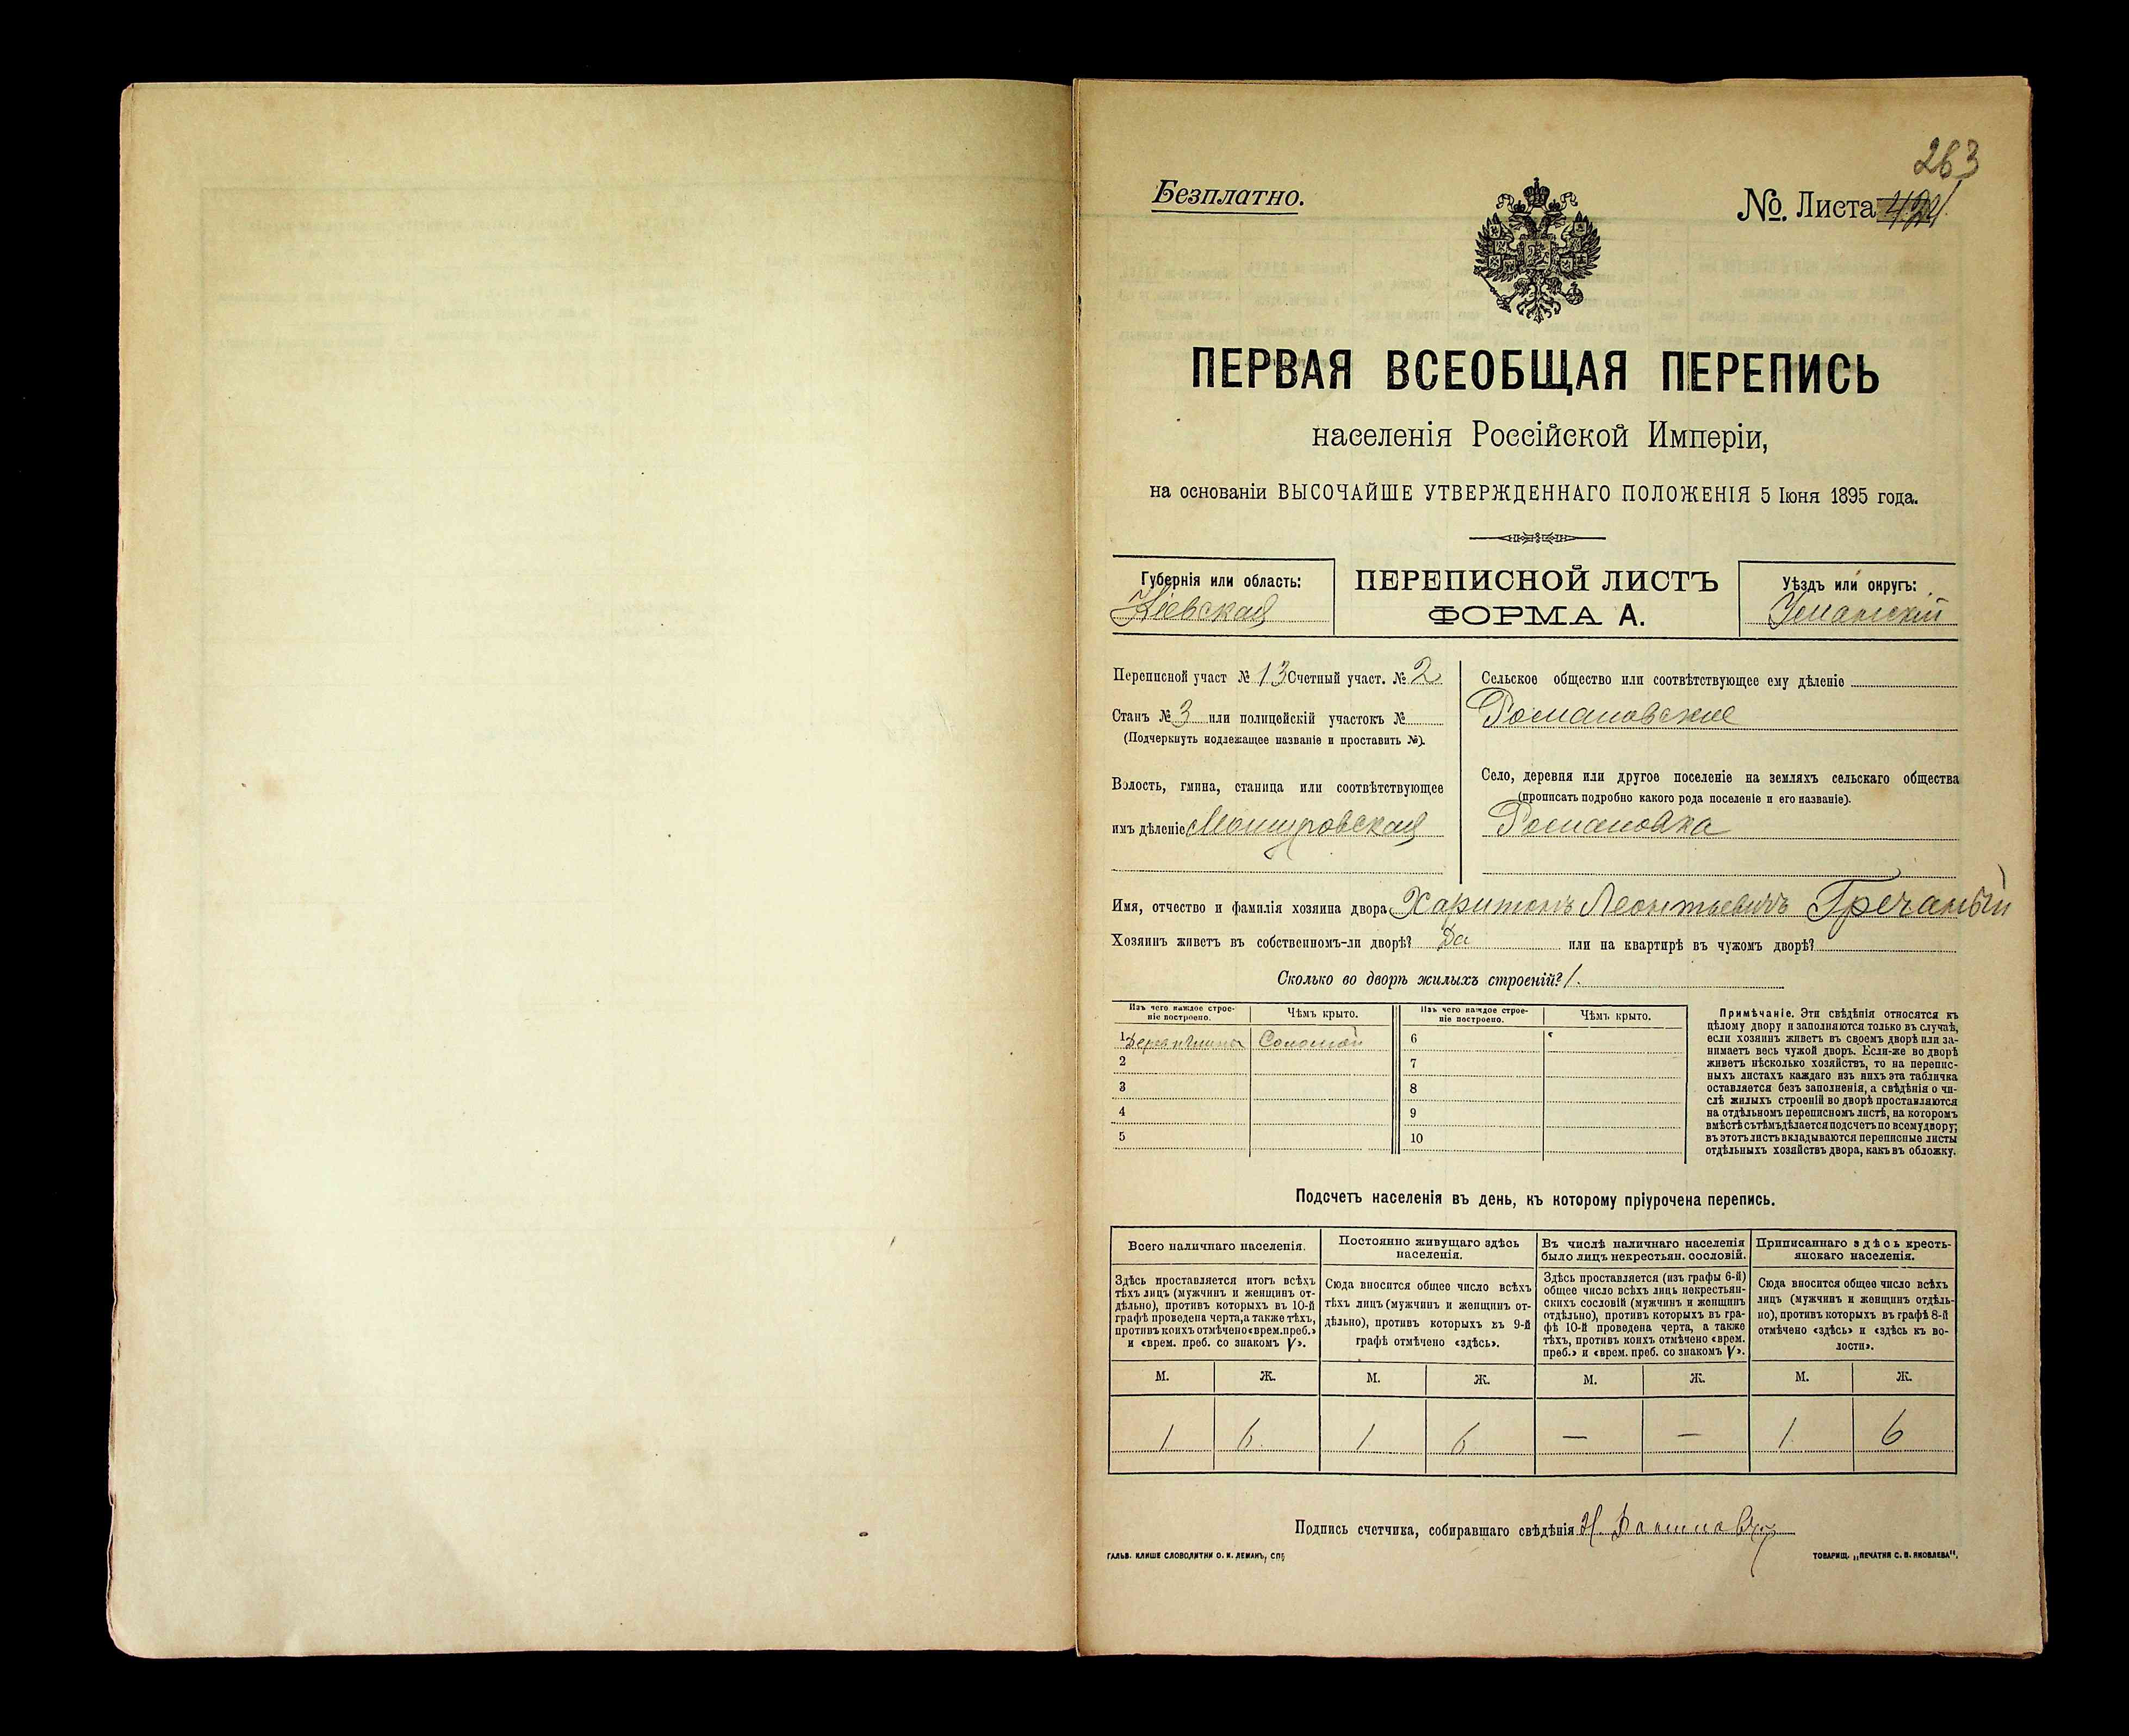 263
Безплатно.
№. Листа
ПЕРВАЯ ВСЕОБЩАЯ ПЕРЕПИСЬ
населенія Россійской Имперіи,
на основаніи ВЫСОЧАЙШЕ УТВЕРЖДЕННАГО ПОЛОЖЕНІЯ 5 Іюня 1895 года.
Губернія или область:
Кіевская
ПЕРЕПИСНОЙ ЛИСТЪ
ФОРМА А.
Уѣздъ или округъ:
Уманскій
Переписной участ № 13 Счетный участ. № 2
Станъ № 3 или полицейскій участокъ №
(Подчеркнуть подлежащее названіе и проставить №).
Волость, гмина, станица или соотвѣтствующее
имъ дѣленіе
Сельское общество или соотвѣтствующее ему дѣленіе
Романовское
Село, деревня или другое поселеніе на земляхъ сельскаго общества
(прописать подробно какого рода поселеніе и его названіе).
Романовка
Имя, отчество и фамилія хозяина двора Харитонъ Леонтьевичъ Гречаный
Хозяинъ живетъ въ собственномъ-ли дворѣ? Да или на квартирѣ въ чужомъ дворѣ?
Сколько во дворѣ жилыхъ строеній? 1.
Изъ чего каждое строе-
ніе построено.
Чѣмъ крыто.
Изъ чего каждое строе-
ніе построено.
Чѣмъ крыто.
1 Соломой 6
2 7
3 8
4 9
5 10
Примѣчаніе. Эти свѣдѣнія относятся къ
цѣлому двору и заполняются только въ случаѣ,
если хозяинъ живетъ въ своемъ дворѣ или за-
нимаетъ весь чужой дворъ. Если-же во дворѣ
живетъ нѣсколько хозяйствъ, то на перепис-
ныхъ листахъ каждаго изъ нихъ эта табличка
оставляется безъ заполненія, а свѣдѣнія о чи-
слѣ жилыхъ строеній во дворѣ проставляются
на отдѣльномъ переписномъ листѣ, на которомъ
вмѣстѣ съ тѣмъ дѣлается подсчетъ по всему двору;
въ этотъ листъ вкладываются переписные листы
отдѣльныхъ хозяйствъ двора, какъ въ обложку.
Подсчетъ населенія въ день, къ которому пріурочена перепись.
Всего наличнаго населенія.
Здѣсь проставляется итогъ всѣхъ
тѣхъ лицъ (мужчинъ и женщинъ от-
дѣльно), противъ которыхъ въ 10-й
графѣ проведена черта, а также тѣхъ,
противъ коихъ отмѣчено «врем. преб.»
и «врем. преб. со знакомъ V».
Постоянно живущаго здѣсь
населенія.
Сюда вносится общее число всѣхъ
тѣхъ лицъ (мужчинъ и женщинъ от-
дѣльно), противъ которыхъ въ 9-й
графѣ отмѣчено «здѣсь».
Въ числѣ наличнаго населенія
было лицъ некрестьян. сословій.
Здѣсь проставляется (изъ графы 6-й)
общее число всѣхъ лицъ некрестьян-
скихъ сословій (мужчинъ и женщинъ
отдѣльно), противъ которыхъ въ гра-
фѣ 10-й проведена черта, а также
тѣхъ, противъ коихъ отмѣчено «врем.
преб.» и «врем. преб. со знакомъ V».
Приписаннаго здѣсь кресть-
янскаго населенія.
Сюда вносится общее число всѣхъ
лицъ (мужчинъ и женщинъ отдѣль-
но), противъ которыхъ въ графѣ 8-й
отмѣчено «здѣсь» и «здѣсь къ во-
лости».
М. Ж. М. Ж. М. Ж. М. Ж.
1 6 1 6 — — 1 6
Подпись счетчика, собиравшаго свѣдѣнія
ГАЛЬВ. КЛИШЕ СЛОВОЛИТНИ О. И. ЛЕМАНЪ, СПБ
ТОВАРИЩ. „ПЕЧАТНЯ С. П. ЯКОВЛЕВА".